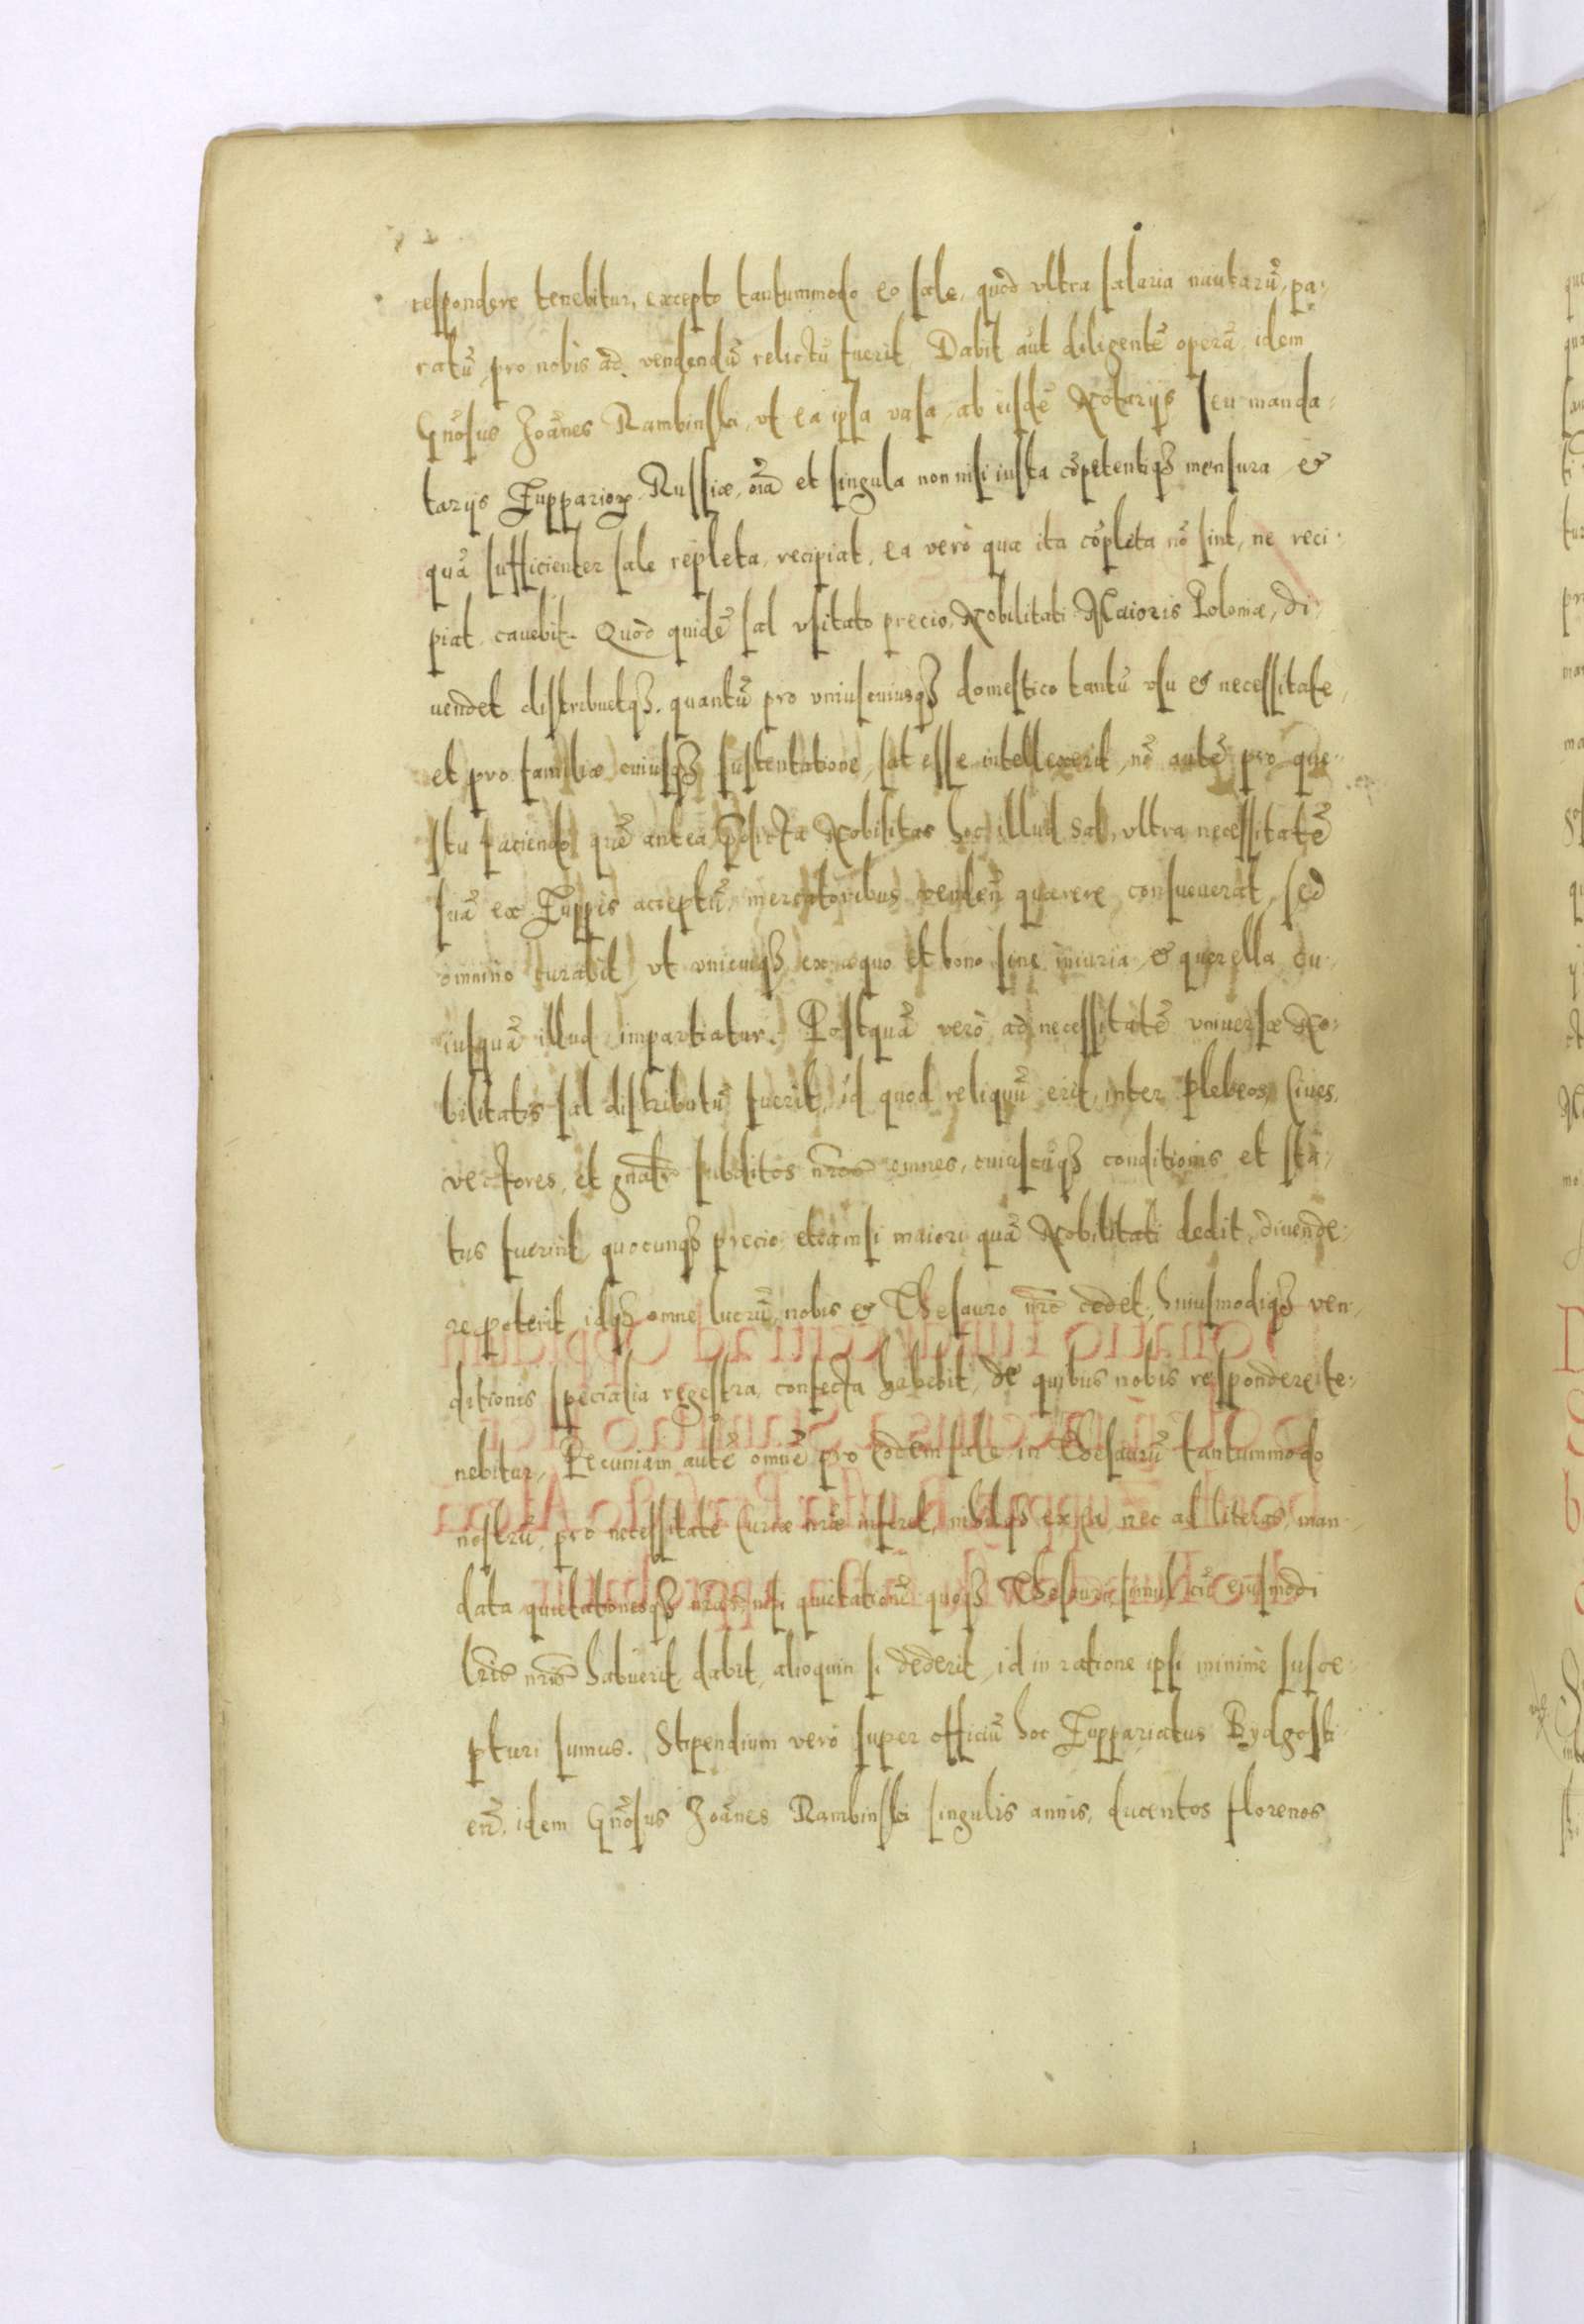 respondere tenebitur, excepto tantummodo eo sale, quòd vltra salaria nautarũ, pa-
ratũ, pro nobis ad vendendũ relictũ fuerit. Dabit aũt diligentẽ operã, idem
Gnõsus Joãnes Rambinski, vt ea ipsa vasa, ab iisdẽ Notarijs seu manda-
tarijs Zuppariorꝝ Russiæ, oĩa et singula non nisi iusta cõpetentiqꝫ mensura &
quã sufficienter sale repleta, recipiat, ea verò quæ ita cõpleta nõ sint, ne reci-
piat cauebit. Quòd quidẽ sal vsitato precio, Nobilitati Maioris Poloniæ, di-
uendet distribuetqꝫ. quantũ pro vniuscuiusqꝫ domestico tantũ vsu & necessitate,
et pro familiæ cuiusqꝫ sustentatione, sat esse intellexerit, nõ autẽ pro que-
stu faciendo quẽ antea p̃dicta Nobilitas hoc illud sal, vltra necessitatẽ
suã ex Zuppis acceptũ, mercatoribus venden̄ quærere consueuerat, sed
omnino curabit, vt vnicuiqꝫ ex æquo et bono sine iniuria & querella cu-
iusquã illud impartiatur. Postquã verò ad necessitatẽ vniuersæ No-
bilitatis sal distributũ fuerit, id quod reliquũ erit, inter plebeos, Ciues,
vectores, et gñalr̃ subditos nr̃os omnes, cuiuscũqꝫ conditionis et sta-
tus fuerint, quocunqꝫ precio etiamsi maiori quã Nobilitati dedit, diuende-
re poterit, idqꝫ omne lucrũ, nobis & Thesauro nr̃o cedet, huiusmodiqꝫ ven-
ditionis specialia regestra confecta habebit, de quibus nobis respondere te-
nebitur, Pecuniam autẽ omnẽ pro eodem sale in Thesaurũ tantummodo
nostrũ, pro necessitate Curiæ nr̃æ inferet, nihilqꝫ ex ea, nec ad literas, man-
data quietationesqꝫ nr̃as, nisi quietationẽ quoqꝫ Thesaurarij simul cũ eiusmodi
lr̃is nr̃is habuerit, dabit, alioquin si dederit, id in ratione ipsi minimè susce-
pturi sumus. Stipendium verò super officiũ hoc Zuppariatus Bydgosti-
en̄. idem Gnõsus Joãnes Rambinski singulis annis, ducentos florenos